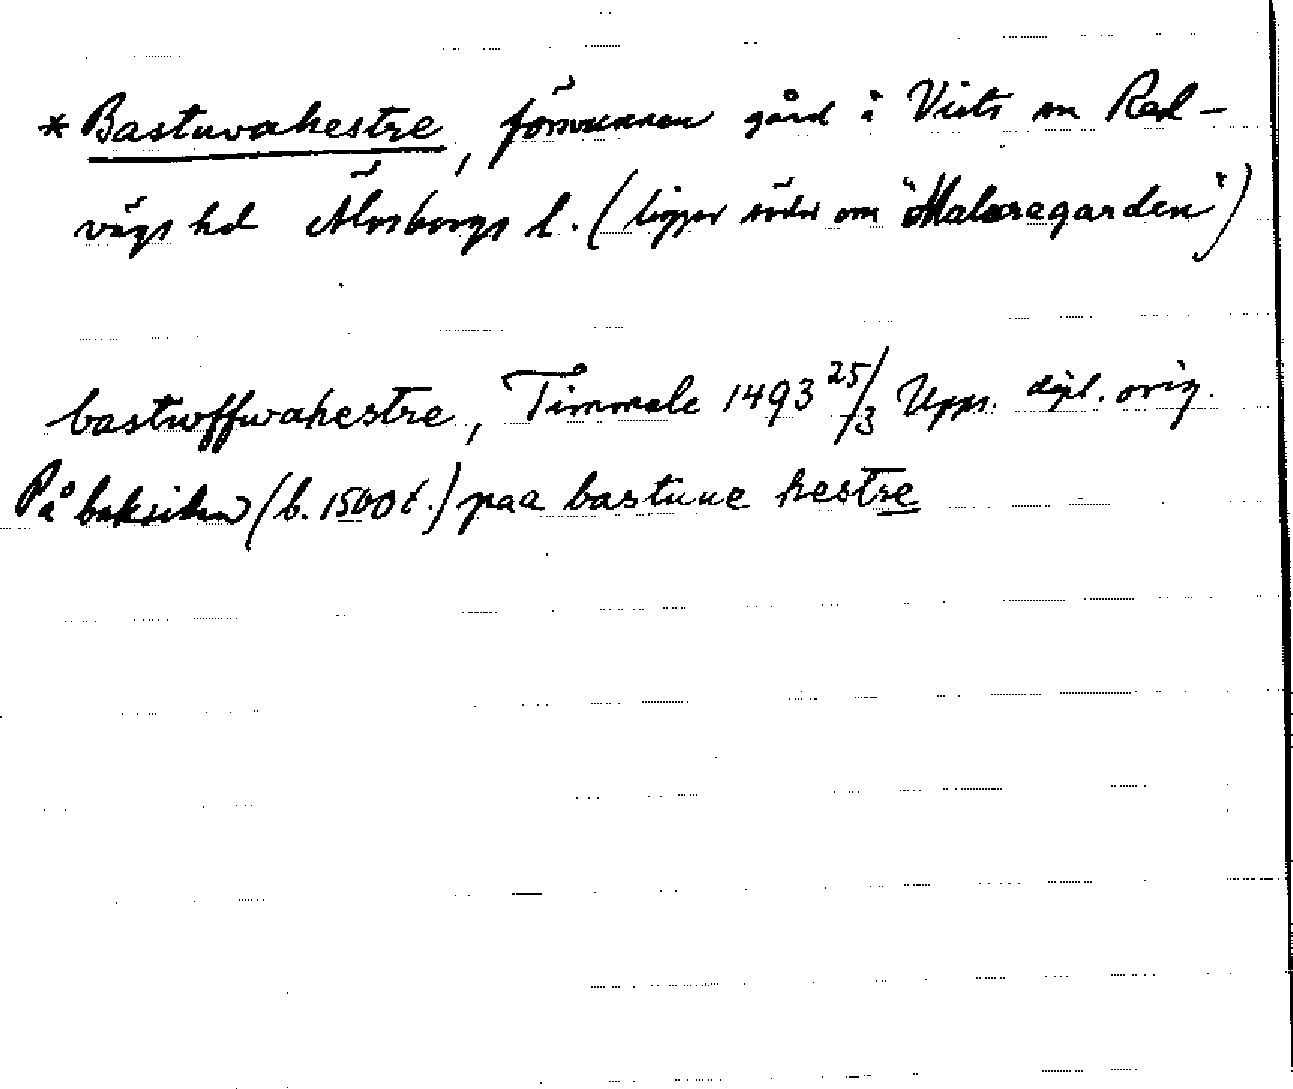 *Bastuvahestre, försvunnen gård i Vists sn Red-
vägs hd Älvsborgs l. (ligger söder om "Malaregarden")
bastwffwahestre, Timmele 1493 25/3 Upps. dipl. orig.
På baksidan (b. 1500 t.) paa bastuue hestre